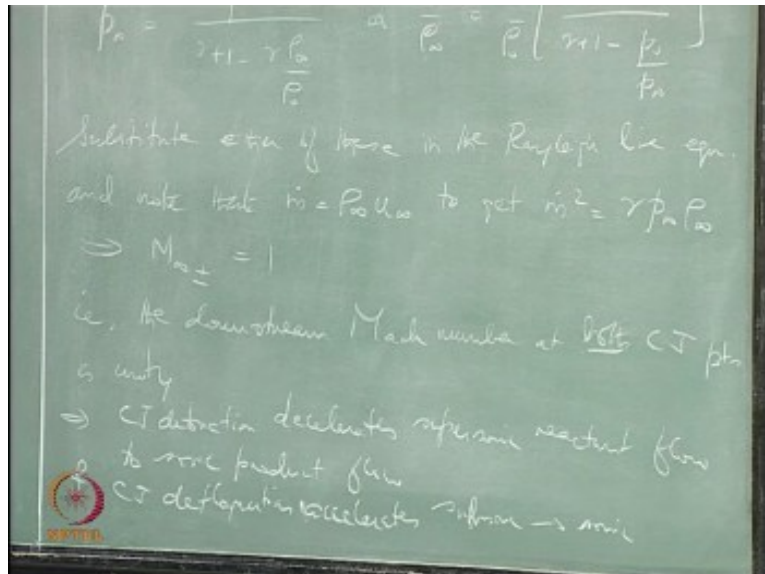 p∞ = 1 / (γ+1 - γ ρ∞/ρ₀) or ρ∞ = ρ₀ [ / (γ+1 - p₀/p∞) ]
Substitute either of these in the Rayleigh line eqn.
and note that ṁ = ρ∞ u∞ to get ṁ² = γ p∞ ρ∞
⇒ M∞± = 1
ie, the downstream Mach number at both CJ pts
is unity
⇒ CJ detonation decelerates supersonic reactant flow
to sonic product flow
& CJ deflagration accelerates subsonic → sonic
NPTEL